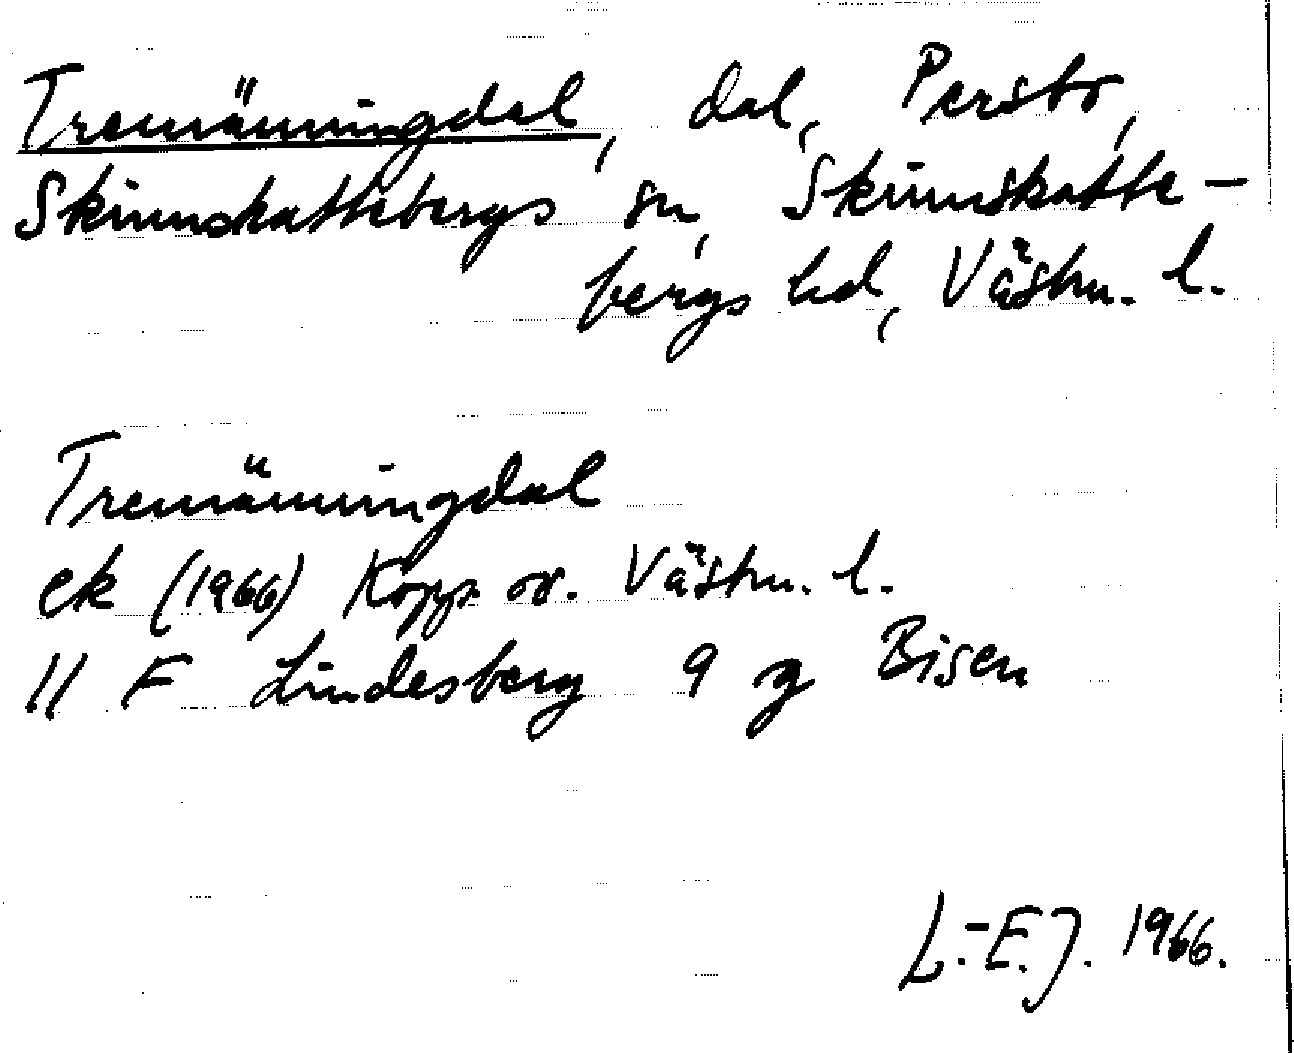 Tremänningdal, dal, Persbo,
Skinnskattebergs sn, Skinnskatte-
bergs hd, Västm. l.
Tremänningdal
ek (1966) Kopp. o. Västm. l.
11 F Lindesberg 9 g Bisen
L.-E.J. 1966.